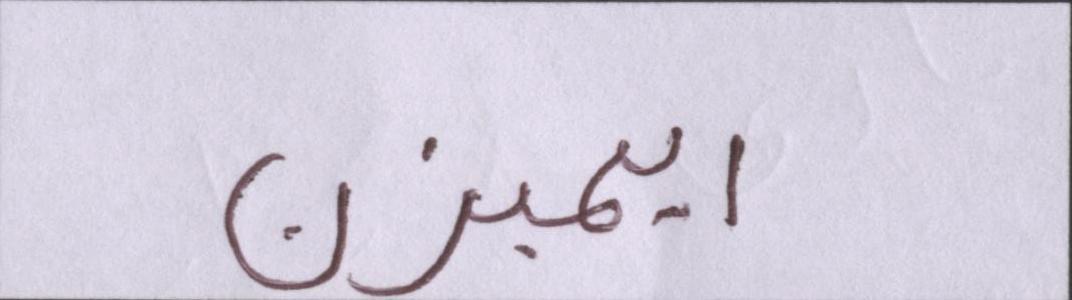 ایمبزن